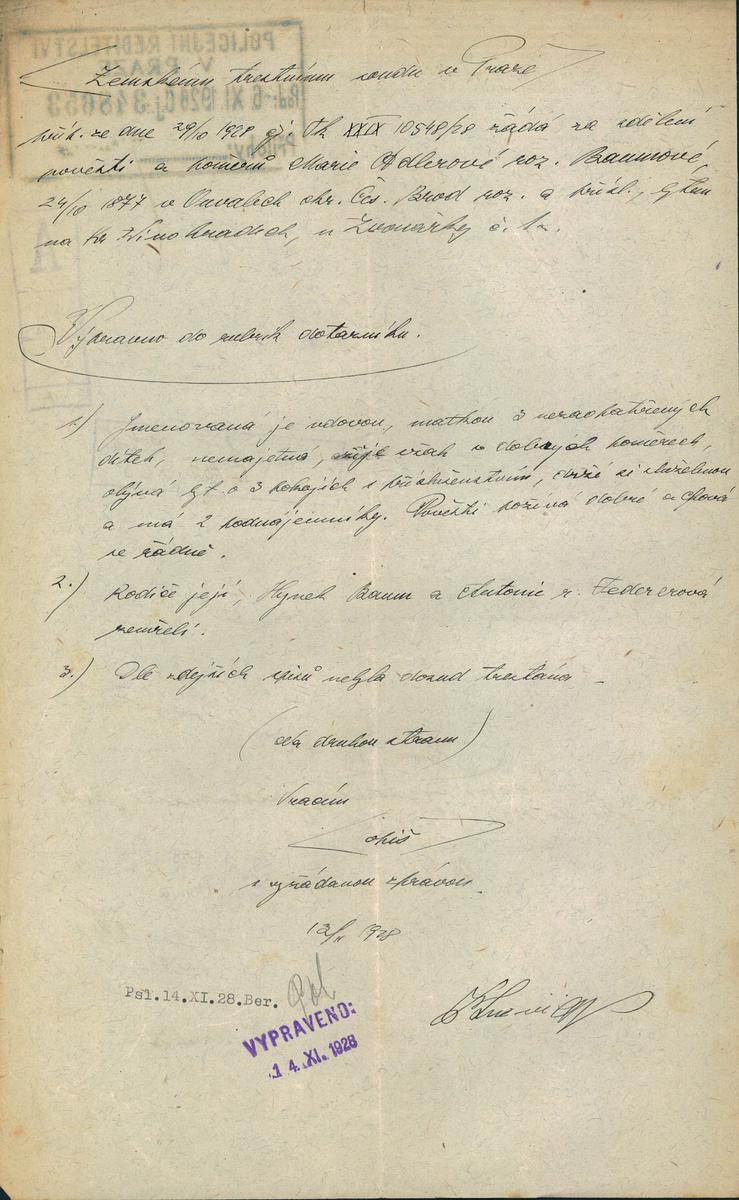 POLICEJNÍ ŘEDITELSTVÍ
V PRAZE
6. XI. 1928 Čj 348653
Přílohy:
Zemskému trestnímu soudu v Praze
příp. ze dne 29/10 1928 čj. Tk XXIX 10548/28 žádá za sdělení
pověsti a poměrů Marie Adlerové roz. Baumové,
24/10 1877 v Ouvalech okr. Čes. Brod roz. a přísl., bytem
na Kr. Vinohradech, u Zvonařky č.
Výpravno do rubrik dotazníku.
1.) Jmenovaná je vdovou, matkou 3 nezaopatřených
dítek, nemajetná, žije však v dobrých poměrech,
obývá byt o 3 pokojích s příslušenstvím, drží si služebnou
a má 2 podnájemníky. Pověsti požívá dobré a chová
se řádně.
2.) Rodiče její, Hynek Baum a Antonie r. Federerová
zemřeli.
3.) Dle zdejších spisů nebyla dosud trestána
(na druhou stranu)
Vracím
spis
s vyžádanou zprávou
13/XI 1928
Psl.14.XI.28.Ber.
VYPRAVENO:
14. XI. 1928